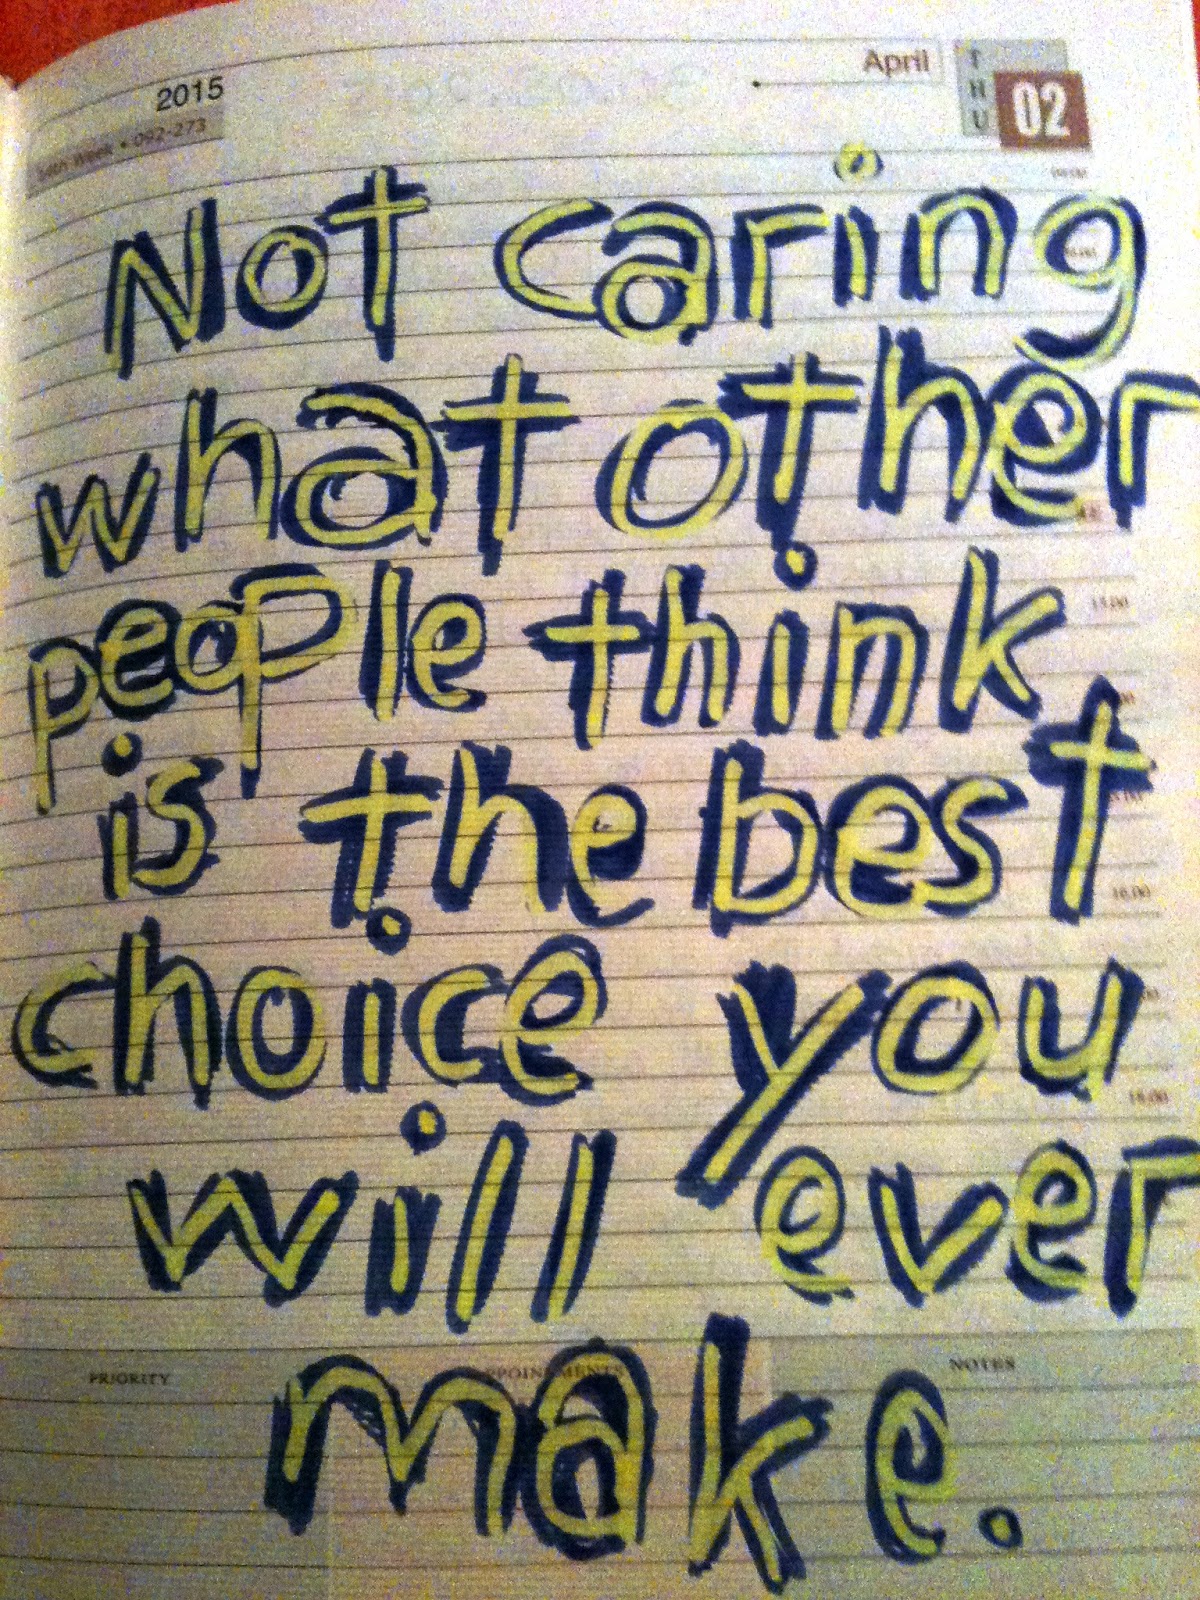 2015
April
THU
02
14th Week • 092-273
Not caring
what other
people think
is the best
choice you
will ever
make.
15.00
16.00
18.00
PRIORITY
APPOINTMENTS
NOTES